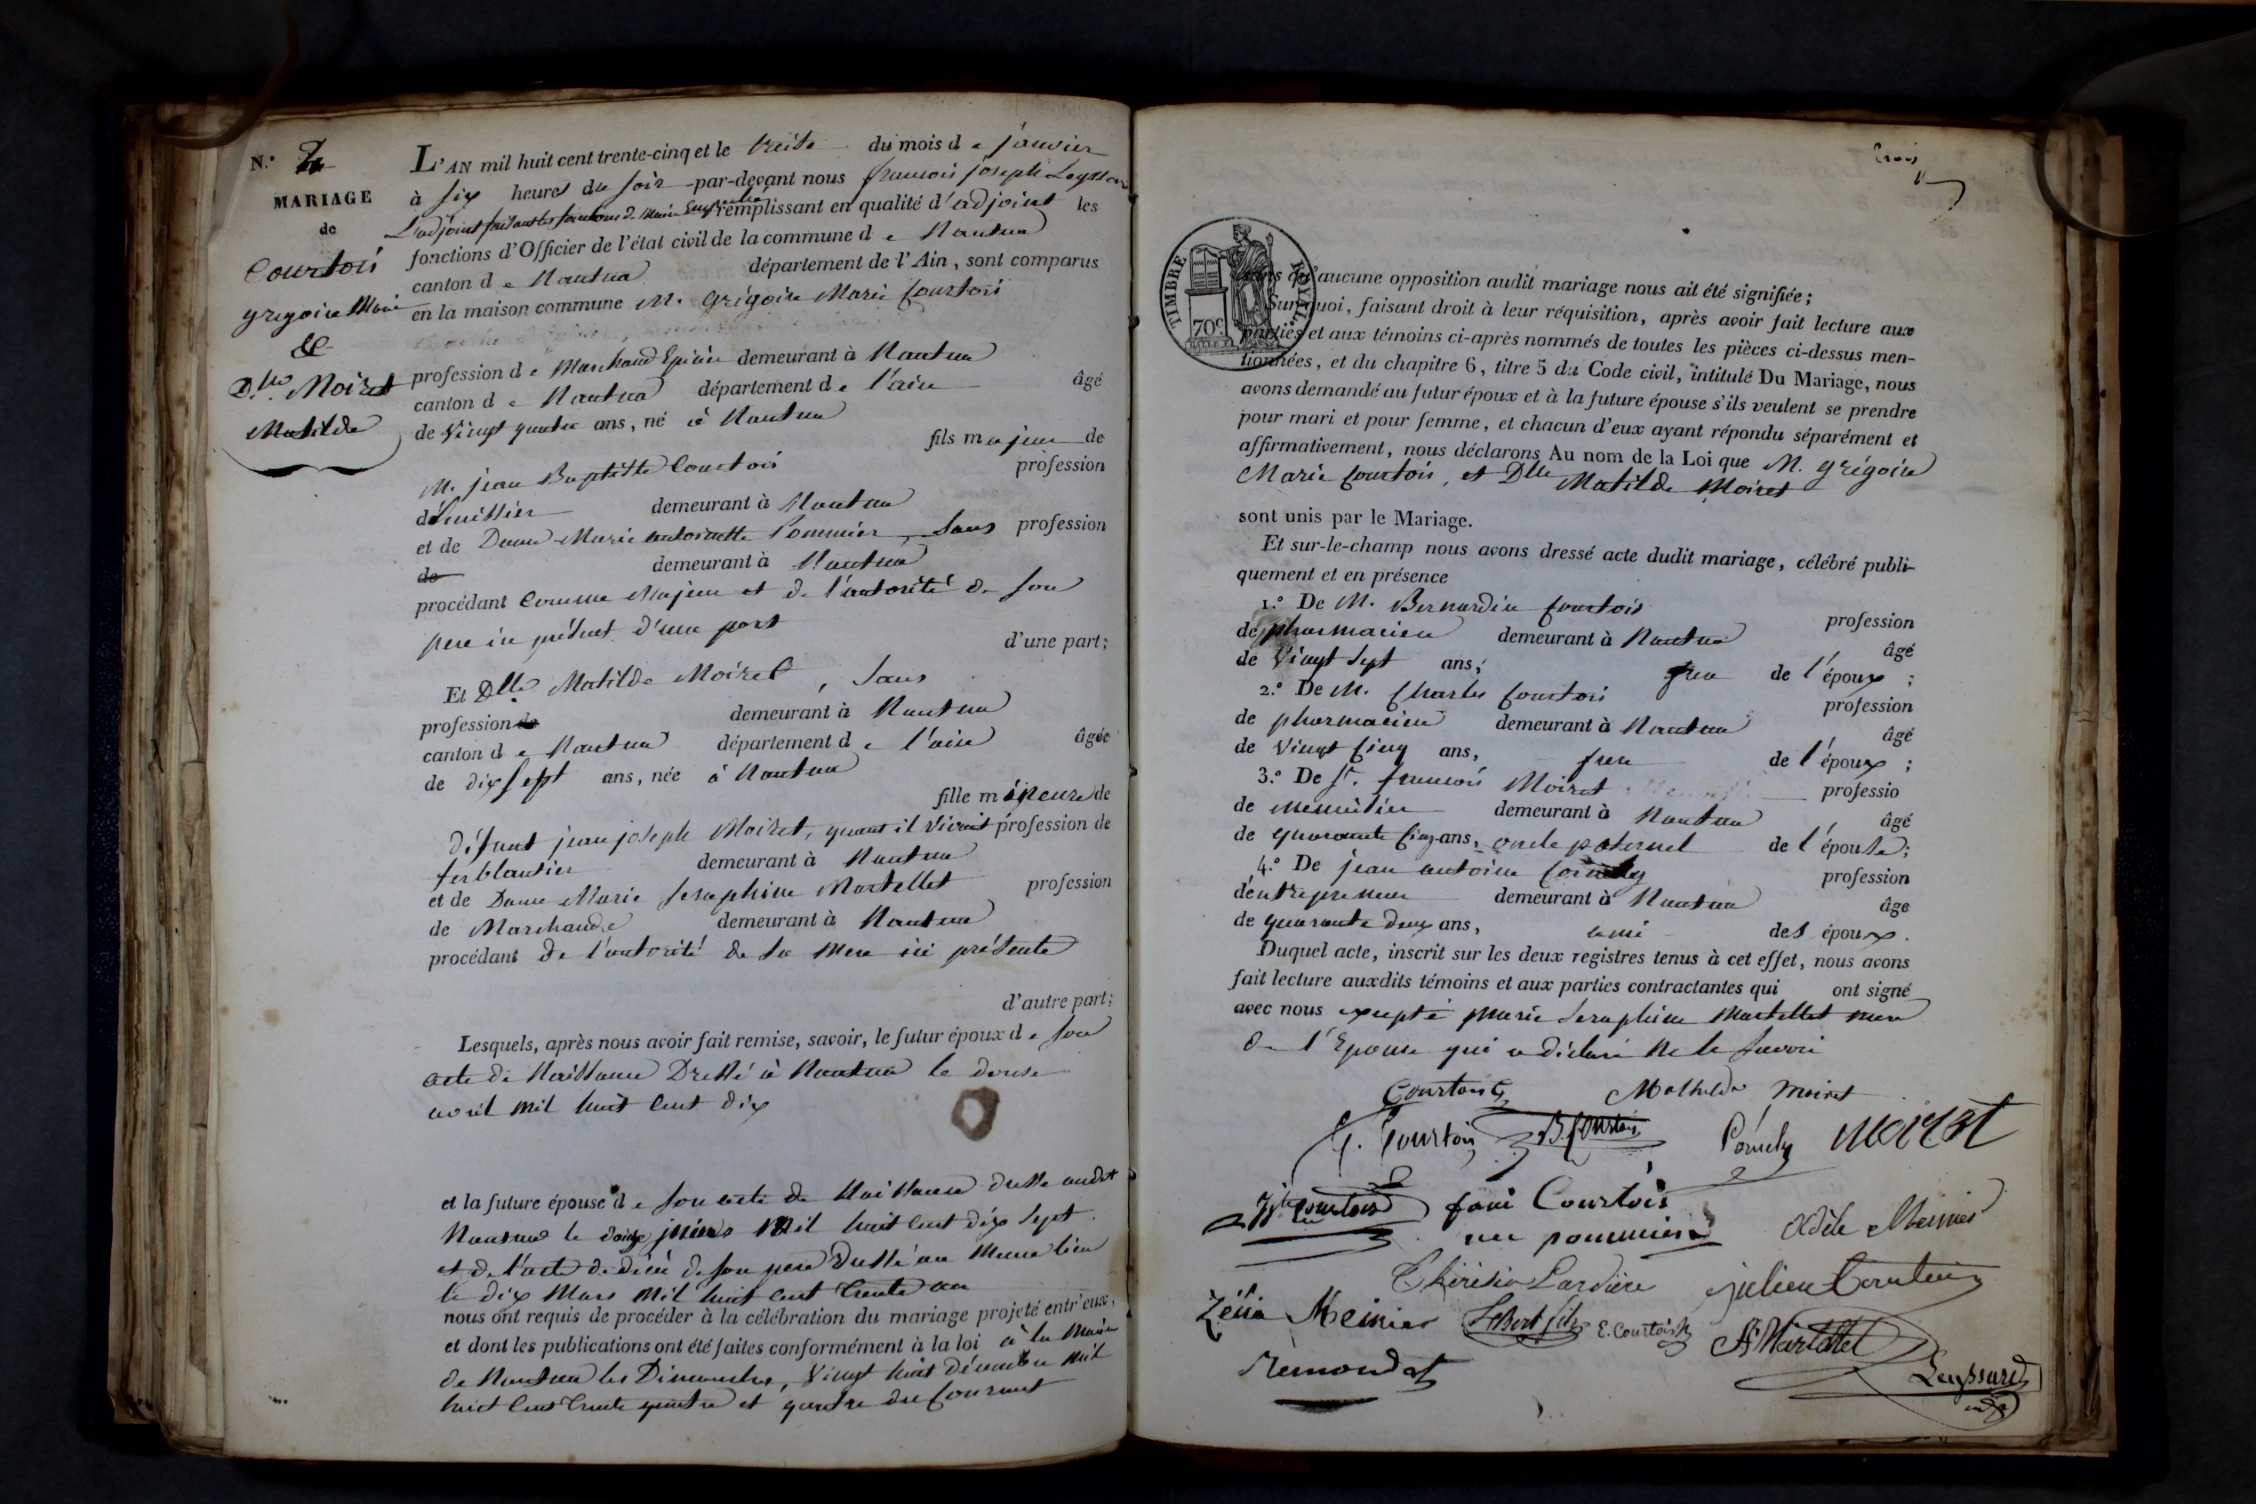 N.o 2
MARIAGE
de
Courtois
gregoire Marie
&
Dlle Moiret
Matilde
L'AN mil huit cent trente-cinq et le treize du mois de janvier
à six heures du soir par-devant nous francois joseph Leyssard
L'adjoint faisant les fonctions de Maire remplissant en qualité d'adjoint les
fonctions d'Officier de l'état civil de la commune de Nantua
canton de Nantua département de l'Ain, sont comparus
en la maison commune M. Grégoire Marie Courtois
profession de Marchand Epicier demeurant à Nantua
canton de Nantua département de l'ain âgé
de Vingt quatre ans, né à Nantua
fils majeur de
M. jean Baptiste Courtois profession
d'huissier demeurant à Nantua
et de Dame Marie antoinette Pommier, Sans profession
de demeurant à Nantua
procédant Comme Majeur et de l'autorité de son
pere ici présent d'une part
d'une part;
Et Dlle Matilde Moiret, Sans
profession de demeurant à Nantua
canton de Nantua département de l'ain âgée
de dix sept ans, née à Nantua
fille mineure de
Défunt jean joseph Moiret, quant il vivait profession de
ferblantier demeurant à Nantua
et de Dame Marie Seraphine Martellet profession
de Marchande demeurant à Nantua
procédant de l'autorité de sa mere ici présente
d'autre part;
Lesquels, après nous avoir fait remise, savoir, le futur époux de son
acte de Naissance Dressé à Nantua le douse
avril mil huit cent dix
et la future épouse de son acte de Naissance dressé audit
Nantua le mil huit cent dix sept
et de l'acte de décès de son pere Dressé au meme lieu
le dix Mars mil huit cent trente un
nous ont requis de procéder à la célébration du mariage projeté entr'eux,
et dont les publications ont été faites conformément à la loi à la Mairie
de Nantua les Dimanches, Vingt huit décembre mil
huit Cent trente quatre et quatre du Courant
trois
TIMBRE ROYAL
70c
sans qu'aucune opposition audit mariage nous ait été signifiée;
Sur quoi, faisant droit à leur réquisition, après avoir fait lecture aux
parties et aux témoins ci-après nommés de toutes les pièces ci-dessus men-
tionnées, et du chapitre 6, titre 5 du Code civil, intitulé Du Mariage, nous
avons demandé au futur époux et à la future épouse s'ils veulent se prendre
pour mari et pour femme, et chacun d'eux ayant répondu séparément et
affirmativement, nous déclarons Au nom de la Loi que M. grégoire
Marie Courtois, et Dlle Matilde Moiret
sont unis par le Mariage.
Et sur-le-champ nous avons dressé acte dudit mariage, célébré publi-
quement et en présence
1.o De M. Bernardin Courtois profession
de pharmacien demeurant à Nantua âgé
de Vingt sept ans; frere de l'époux;
2.o De M. Charles Courtois profession
de pharmacien demeurant à Nantua âgé
de Vingt Cinq ans, frere de l'époux;
3.o De Sr. francois Moiret professio
de menuisier demeurant à Nantua âgé
de quarante Cinq ans, oncle paternel de l'épouse;
4.o De jean antoine profession
d'entrepreneur demeurant à Nantua âge
de quarante deux ans, ami des époux.
Duquel acte, inscrit sur les deux registres tenus à cet effet, nous avons
fait lecture auxdits témoins et aux parties contractantes qui ont signé
avec nous excepté Marie Seraphine Martellet mere
de l'Epouse qui a déclaré ne le savoir
Courtois G Mathilde Moiret
Courtois B. Courtois Moiret
Courtois fani Courtois
née pommier Adèle Meinier
Lardiere julien
Zélia Meinier fils E. Courtois A Martellet
Rémondat Leyssard